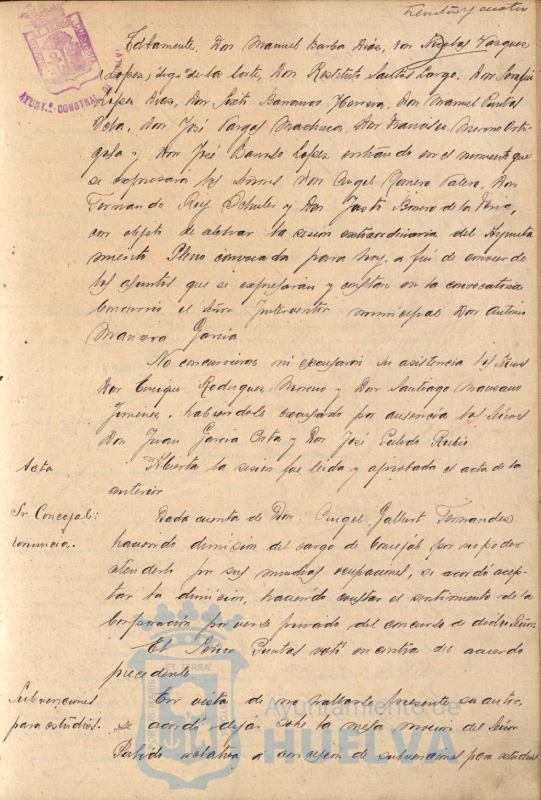 treinta y cuatro
Don Manuel Barba Díaz, Don Nicolas Vazquez
Lopez, de la Corte, Don Restituto Santos Largo, Don Serafin
Lopez Diaz, Don Sixto Herrera, Don Manuel Puntas
Don José Vargas Machuca, Don Francisco Moreno Orti
y Don José Barroso Lopez entrando en el momento que
se expresará los Señores Don Angel Romero Valero, Don
Fernando Rey y Don Justo Borrero de la
con objeto de celebrar la sesion extraordinaria del Ayunta
miento Pleno convocada para hoy, a fin de conocer de
los asuntos que se expresaran y constan en la convocatoria
Concurrió el Señor Interventor municipal Don Antonio
Garcia
No concurrieron ni excusaron su asistencia los Señores
Don Enrique Rodriguez Moreno y Don Santiago Manzano
Jimenez, habiendolo excusado por ausencia los Señores
Don Juan Garcia Orta y Don José Pulido Rubio
Acta
Abierta la sesion fue leida y aprobada el acta de la
anterior
Sr. Concejal:
renuncia.
Dada cuenta de Don Angel Gallart Fernandez
haciendo dimision del cargo de Concejal por no poder
atenderlo por sus muchas ocupaciones, se acordó acep
tar la dimision, haciendo constar el sentimiento de la
Corporación por verse privada del concurso de dicho Señor.
El Señor Puntas votó en contra del acuerdo
precedente
Subvenciones
para estudios.
En vista de no hallarse presente su autor,
se acordó dejar sobre la mesa mocion del Señor
Pulido relativa a concesion de subvenciones para estudios
Ayuntamiento de
HUELVA